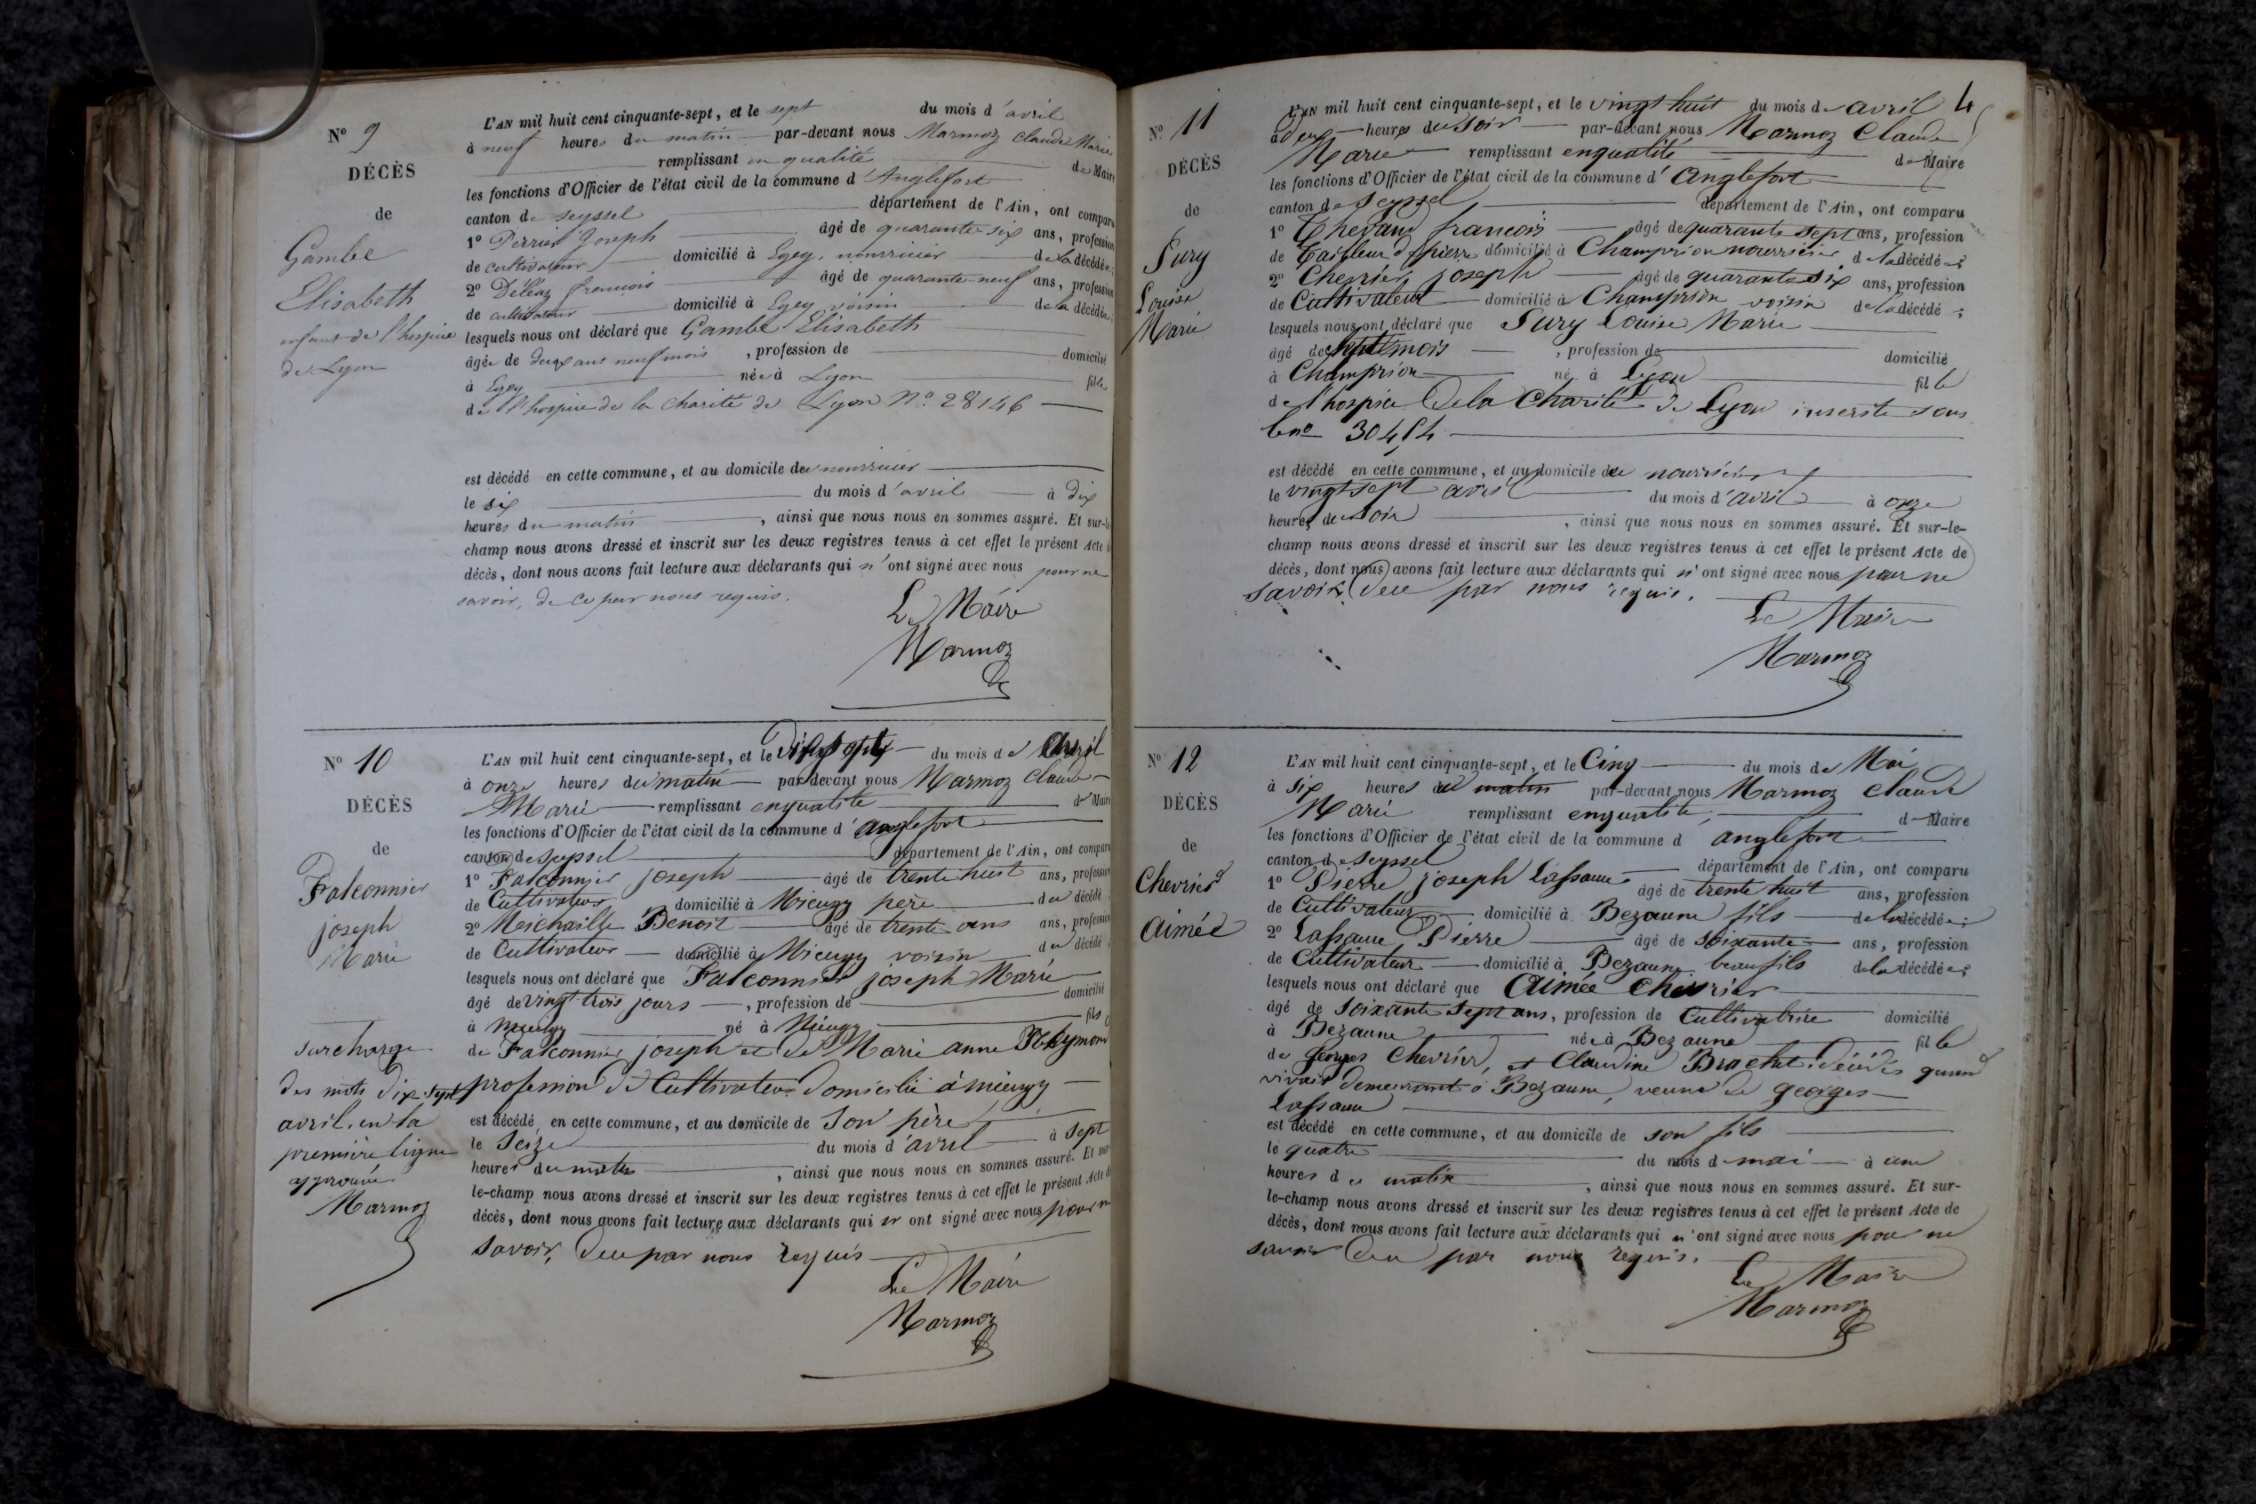 N° 9
DÉCÈS
de
Gambe
Elisabeth
enfant de l'hospice
de Lyon
L'AN mil huit cent cinquante-sept, et le sept du mois d'avril
à neuf heures du matin par-devant nous Marmoz Claude Marie
remplissant en qualité de Maire
les fonctions d'Officier de l'état civil de la commune d'Anglefort
canton de Seyssel département de l'Ain, ont comparu
1° Perrier Joseph âgé de quarante six ans, profession
de cultivateur domicilié à Egey, nourricier de la décédée;
2° Déléaz francois âgé de quarante-neuf ans, profession
de cultivateur domicilié à Egey voisin de la décédée;
lesquels nous ont déclaré que Gambe Elisabeth
âgée de deux ans neuf mois, profession de domicilié
à Egey née à Lyon fille
de l'hospice de la charité de Lyon N° 28146
est décédé en cette commune, et au domicile du nourricier
le six du mois d'avril à dix
heures du matin, ainsi que nous nous en sommes assuré. Et sur-le-
champ nous avons dressé et inscrit sur les deux registres tenus à cet effet le présent Acte de
décès, dont nous avons fait lecture aux déclarants qui n'ont signé avec nous pour ne
savoir, de ce par nous requis.
Le Maire
Marmoz
N° 10
DÉCÈS
de
Falconnier
joseph
Marie
surcharge
des mots dix-sept
avril, en la
première ligne
approuvée
Marmoz
L'AN mil huit cent cinquante-sept, et le dix sept du mois de Avril
à onze heures du matin par-devant nous Marmoz Claude
Marie remplissant enqualité de Maire
les fonctions d'Officier de l'état civil de la commune d'anglefort
canton de Seyssel département de l'Ain, ont comparu
1° Falconnier joseph âgé de trente huit ans, profession
de Cultivateur domicilié à Mieugy père du décédé
2° Meichaille Benoit âgé de trente ans ans, profession
de Cultivateur domicilié à Mieugy voisin du décédé
lesquels nous ont déclaré que Falconnier joseph Marie
âgé de vingt trois jours, profession de domicilié
à Mieugy né à Mieugy fils
de Falconnier joseph et de Marie anne
profession de Cultivateur domicilié à mieugy
est décédé en cette commune, et au domicile de Son père
le Seize du mois d'avril à sept
heures du matin, ainsi que nous nous en sommes assuré. Et sur-
le-champ nous avons dressé et inscrit sur les deux registres tenus à cet effet le présent Acte de
décès, dont nous avons fait lecture aux déclarants qui n'ont signé avec nous pour ne
savoir, de ce par nous requis
Le Maire
Marmoz
4
N° 11
DÉCÈS
de
Sury
Louise
Marie
L'AN mil huit cent cinquante-sept, et le vingt huit du mois de avril
à deux heures du Soir par-devant nous Marmoz Claude
Marie remplissant enqualité de Maire
les fonctions d'Officier de l'état civil de la commune d'Anglefort
canton de Seyssel département de l'Ain, ont comparu
1° francois âgé de quarante sept ans, profession
de Tailleur de pierre domicilié à Champrion nourricier de la décédée
2° Chevrier joseph âgé de quarante six ans, profession
de Cultivateur domicilié à Champrion voisin de la décédé;
lesquels nous ont déclaré que Sury Louise Marie
âgé de sept mois, profession de domicilié
à Champrion né à Lyon fille
de l'hospice de la Charité de Lyon inscrite sous
le n° 30454
est décédé en cette commune, et au domicile du nourricier
le vingt sept avril du mois d'avril à onze
heures du soir, ainsi que nous nous en sommes assuré. Et sur-le-
champ nous avons dressé et inscrit sur les deux registres tenus à cet effet le présent Acte de
décès, dont nous avons fait lecture aux déclarants qui n'ont signé avec nous pour ne
savoir, de ce par nous requis.
Le Maire
Marmoz
N° 12
DÉCÈS
de
Chevrier
Aimée
L'AN mil huit cent cinquante-sept, et le Cinq du mois de Mai
à six heures du matin par-devant nous Marmoz Claude
Marie remplissant enqualité de Maire
les fonctions d'Officier de l'état civil de la commune d anglefort
canton de Seyssel département de l'Ain, ont comparu
1° Pierre joseph Lassaune âgé de trente huit ans, profession
de Cultivateur domicilié à Bezaune fils de la décédée;
2° Lassaune Pierre âgé de soixante ans, profession
de Cultivateur domicilié à Bezaune beaufils de la décédée;
lesquels nous ont déclaré que Aimée Chevrier
âgé de soixante sept ans, profession de Cultivatrice domicilié
à Bezaune née à Bezaune fille
de georges Chevrier, et Claudine Brachet décédés quand
vivait demeurant à Bezaune, veuve de georges
Lassaune
est décédé en cette commune, et au domicile de son fils
le quatre du mois d mai à une
heures du matin, ainsi que nous nous en sommes assuré. Et sur-
le-champ nous avons dressé et inscrit sur les deux registres tenus à cet effet le présent Acte de
décès, dont nous avons fait lecture aux déclarants qui n'ont signé avec nous pour ne
savoir de ce par nous requis.
Le Maire
Marmoz